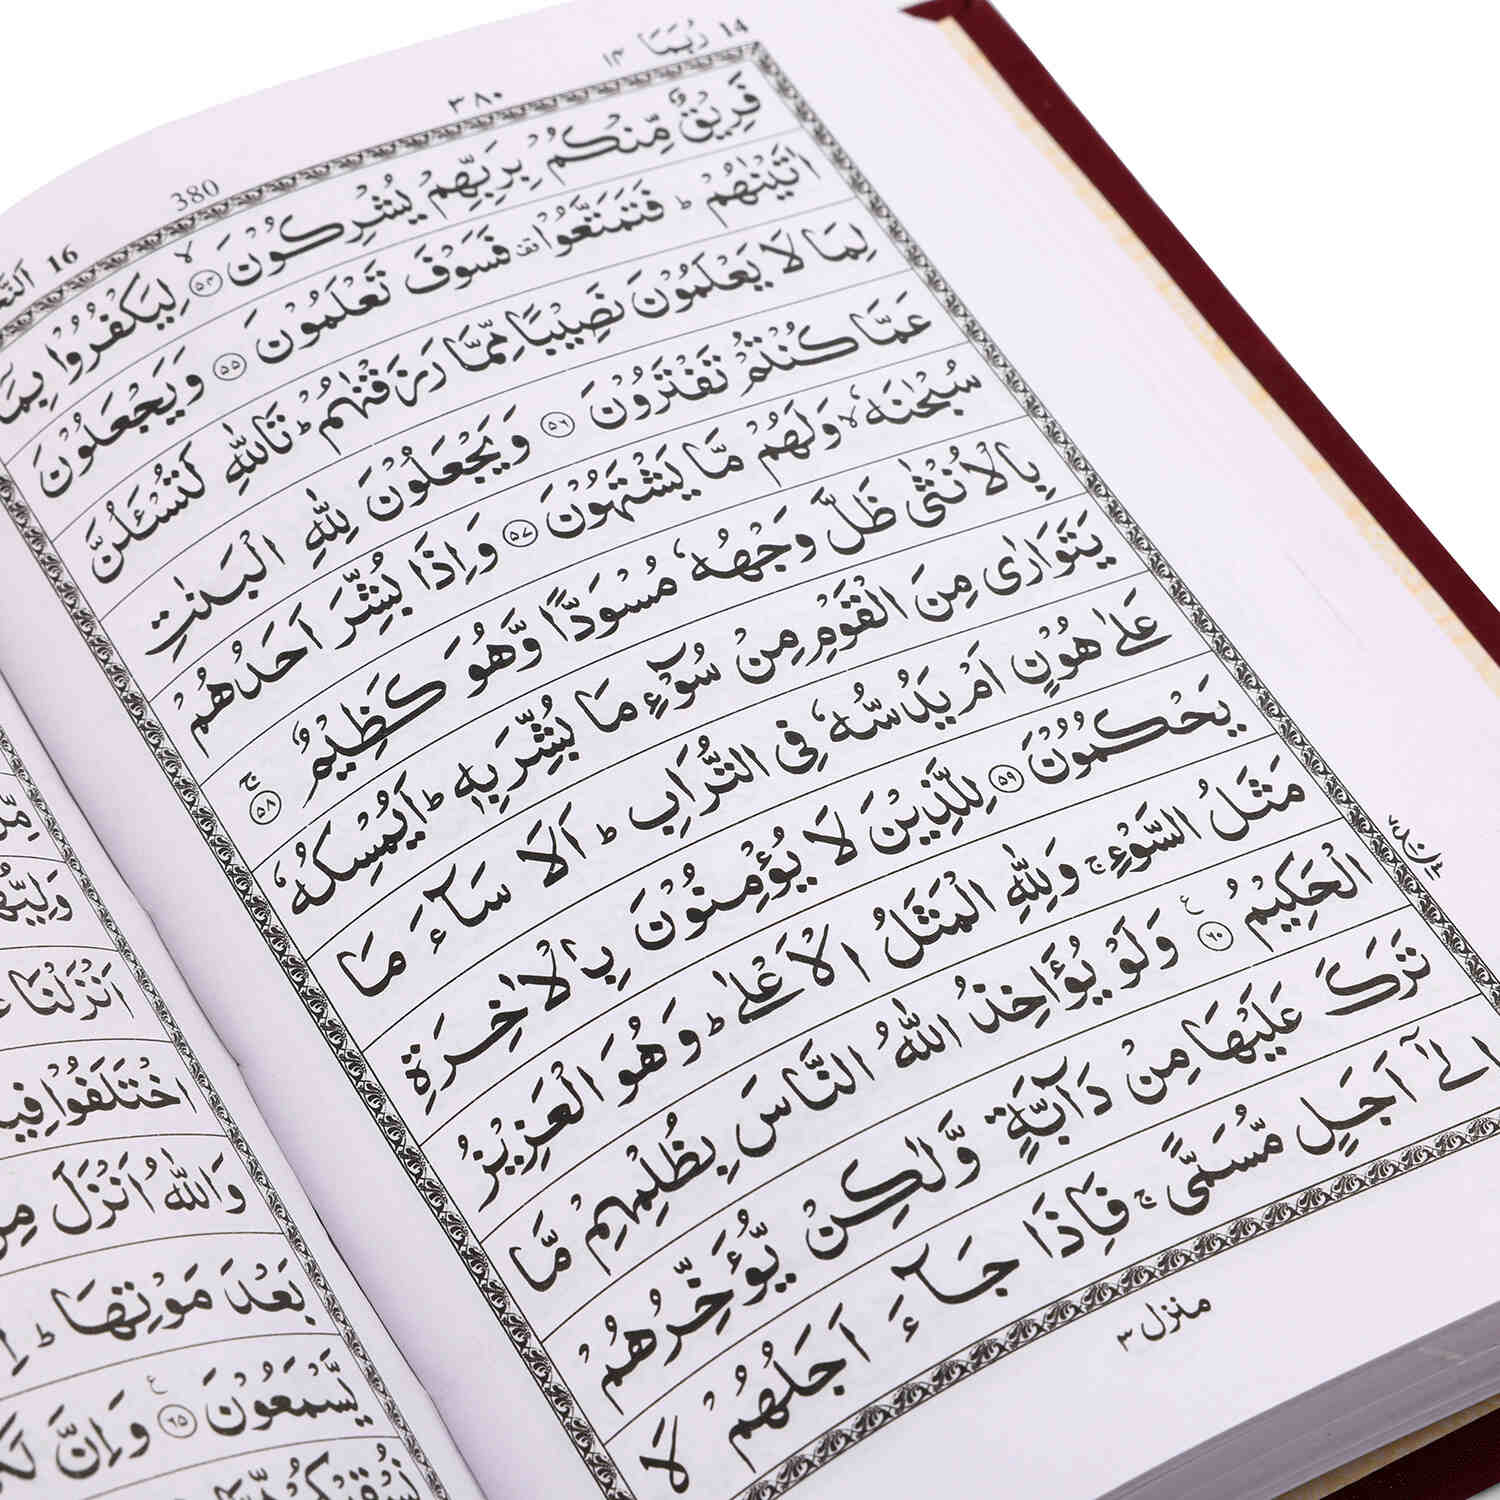 النَّحل 16
380
٣٨٠
رُبَمَا ١٤
14
فَرِيْقٌ مِّنْكُمْ بِرَبِّهِمْ يُشْرِكُوْنَ ۙ‏﴿۵۴﴾ لِيَكْفُرُوْا بِمَاۤ
اٰتَيْنٰهُمْ ؕ فَتَمَتَّعُوْا ۟ فَسَوْفَ تَعْلَمُوْنَ ﴿۵۵﴾ وَيَجْعَلُوْنَ
لِمَا لَا يَعْلَمُوْنَ نَصِيْبًا مِّمَّا رَزَقْنٰهُمْ ؕ تَاللّٰهِ لَتُسْئَلُنَّ
عَمَّا كُنْتُمْ تَفْتَرُوْنَ ﴿۵۶﴾ وَيَجْعَلُوْنَ لِلّٰهِ الْبَنٰتِ
سُبْحٰنَهٗ ۙ وَلَهُمْ مَّا يَشْتَهُوْنَ ﴿۵۷﴾ وَاِذَا بُشِّرَ اَحَدُهُمْ
بِالْاُنْثٰى ظَلَّ وَجْهُهٗ مُسْوَدًّا وَّهُوَ كَظِيْمٌ ۚ ﴿۵۸﴾
يَتَوَارٰى مِنَ الْقَوْمِ مِنْ سُوْٓءِ مَا بُشِّرَ بِهٖ ؕ اَيُمْسِكُهٗ
عَلٰى هُوْنٍ اَمْ يَدُسُّهٗ فِى التُّرَابِ ؕ اَلَا سَآءَ مَا
يَحْكُمُوْنَ ﴿۵۹﴾ لِلَّذِيْنَ لَا يُؤْمِنُوْنَ بِالْاٰخِرَةِ
مَثَلُ السَّوْءِ ۚ وَلِلّٰهِ الْمَثَلُ الْاَعْلٰى ؕ وَهُوَ الْعَزِيْزُ
الْحَكِيْمُ ﴿۶۰﴾ ع وَلَوْ يُؤَاخِذُ اللّٰهُ النَّاسَ بِظُلْمِهِمْ مَّا
تَرَكَ عَلَيْهَا مِنْ دَآبَّةٍ وَّلٰكِنْ يُّؤَخِّرُهُمْ
اِلٰٓى اَجَلٍ مُّسَمًّى ۚ فَاِذَا جَآءَ اَجَلُهُمْ لَا
منزل ٣
اَنْزَلْنَا
اخْتَلَفُوْا
وَاللّٰهُ اَنْزَلَ
بَعْدَ مَوْتِهَا ؕ
يَّسْمَعُوْنَ ﴿۶۵﴾ ع وَاِنَّ